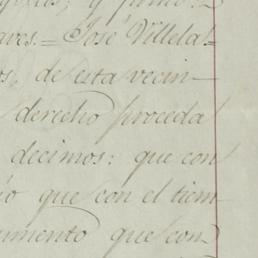 y firmo.
aves.= José Villela
os, de esta vecin-
derecho proceda
decimos: que con
io que con el tiem
umento que con-